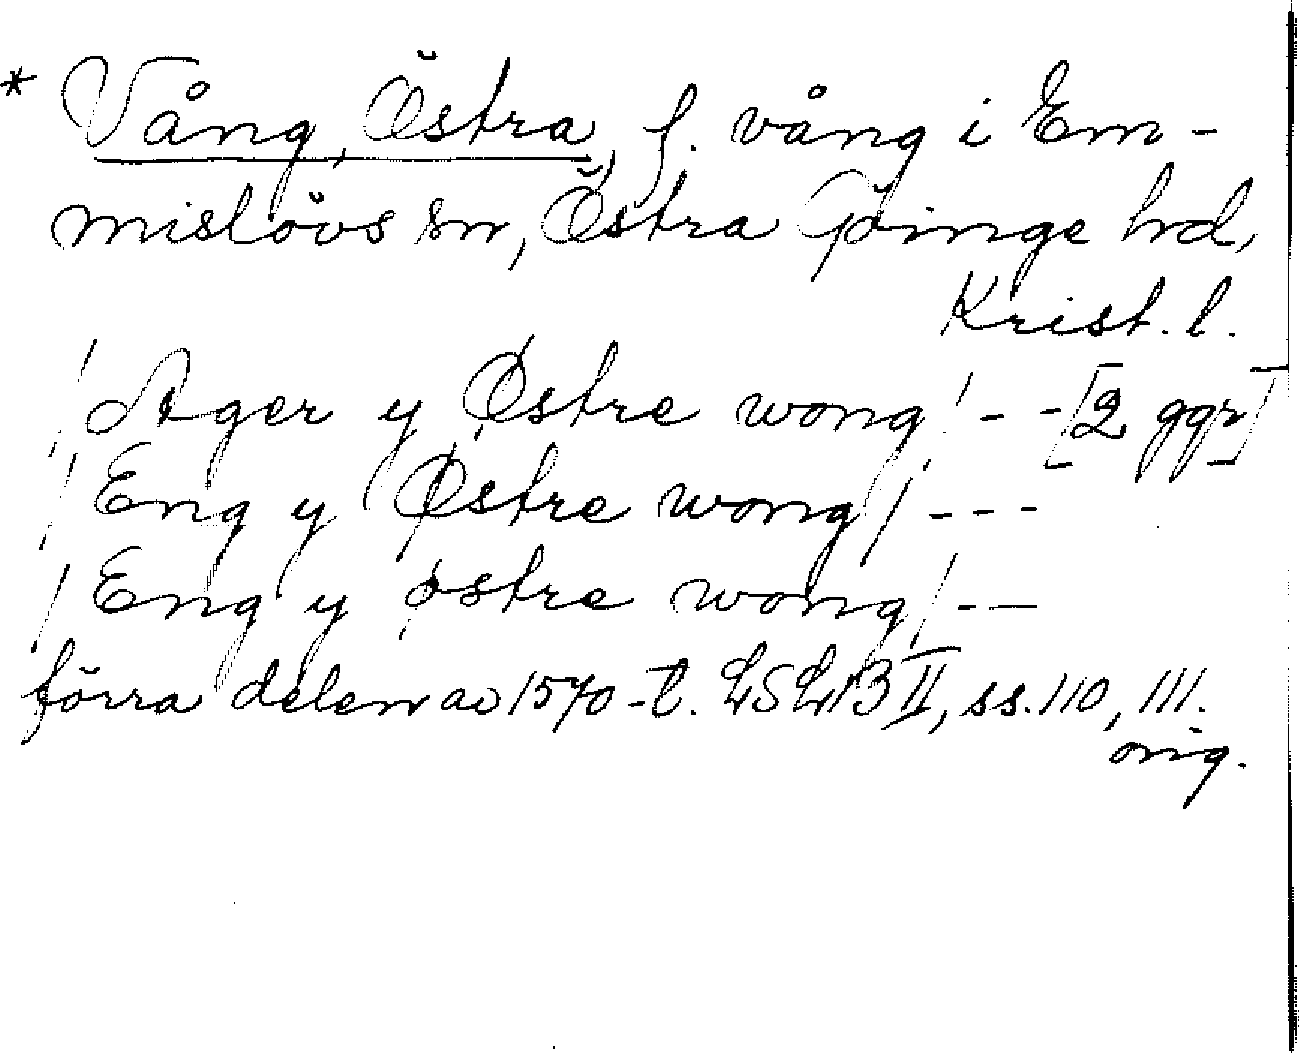 * Vång, Östra, f. vång i Em-
mislövs sn, Östra Göinge hd,
Krist. l.
/ Ager y Østre wong / - - [2 ggr]
/ Eng y Østre wong / - - -
/ Eng y østre wong / - -
förra delen av 1570-t. LSLJB II, ss. 110, 111.
orig.